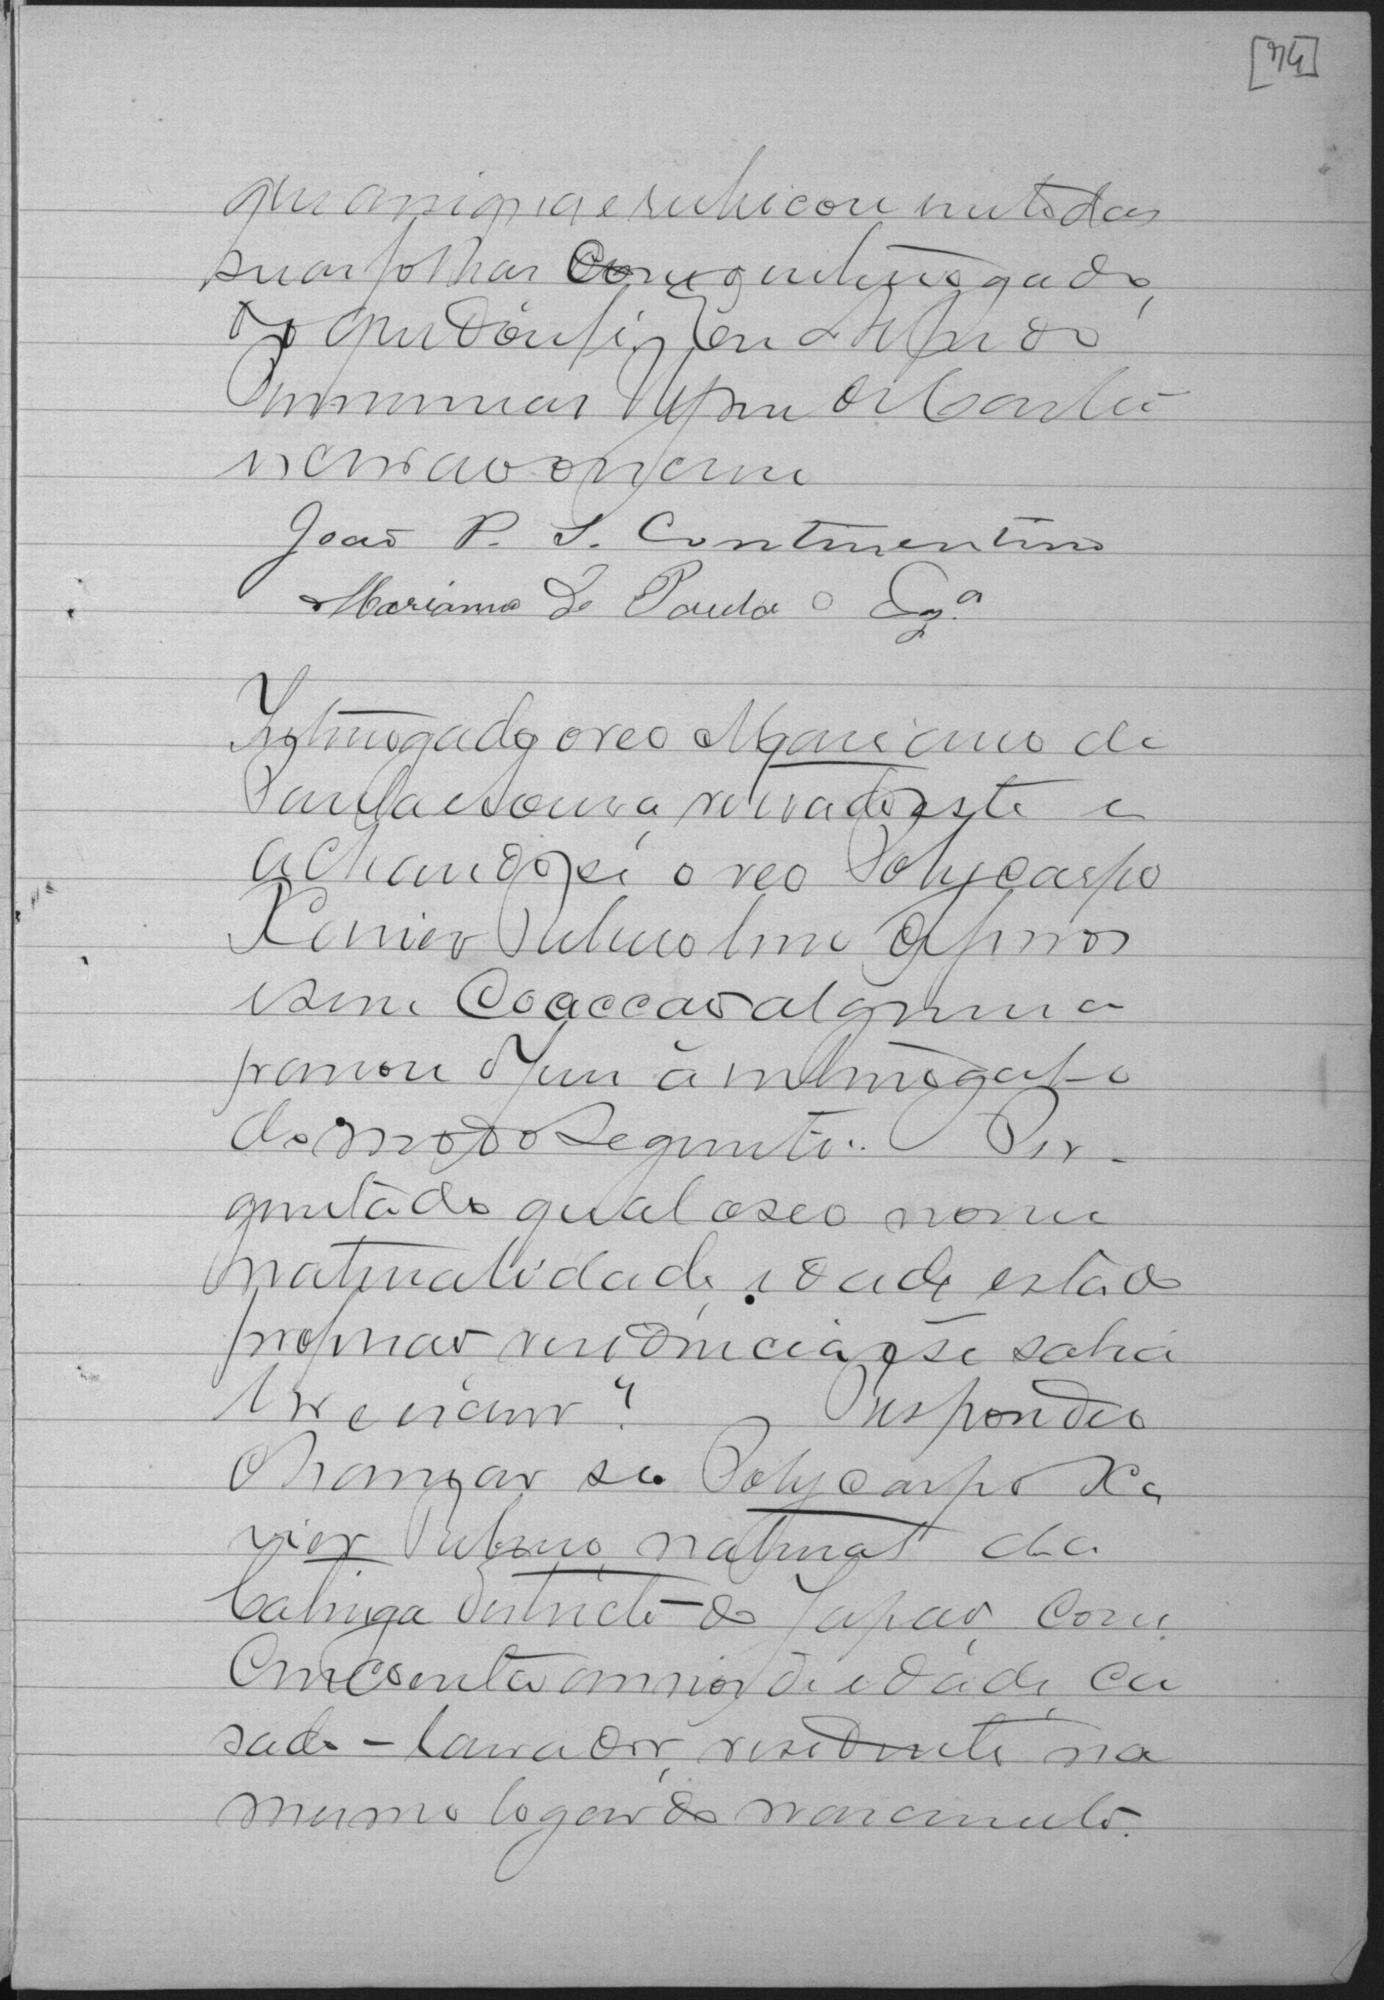 [74]
que assigna e rubicou em todas
suas folhas com o interrogado,
do que dou fé. Eu
escrivão o escrevi
João P. S. Continentino
Mariano de Paula e Sza
Interrogado o reo Mariano de
Paula e Souza, retirado este e
achando se o reo Polycarpo
Xavier Rubino livre de ferros
e sem coacção alguma
passou o Juiz á interrogal-o
do modo seguinte: Per-
guntado qual o seo nome
naturalidade, idade estado
profissão residencia e se sabia
ler e escrever? Respondeo
chamar se Polycarpo Xa
vier Rubino natural da
districto do Japão, com
cincoenta annos de edade, ca
sado - lavrador, residente na
mesmo logar do nascimento.